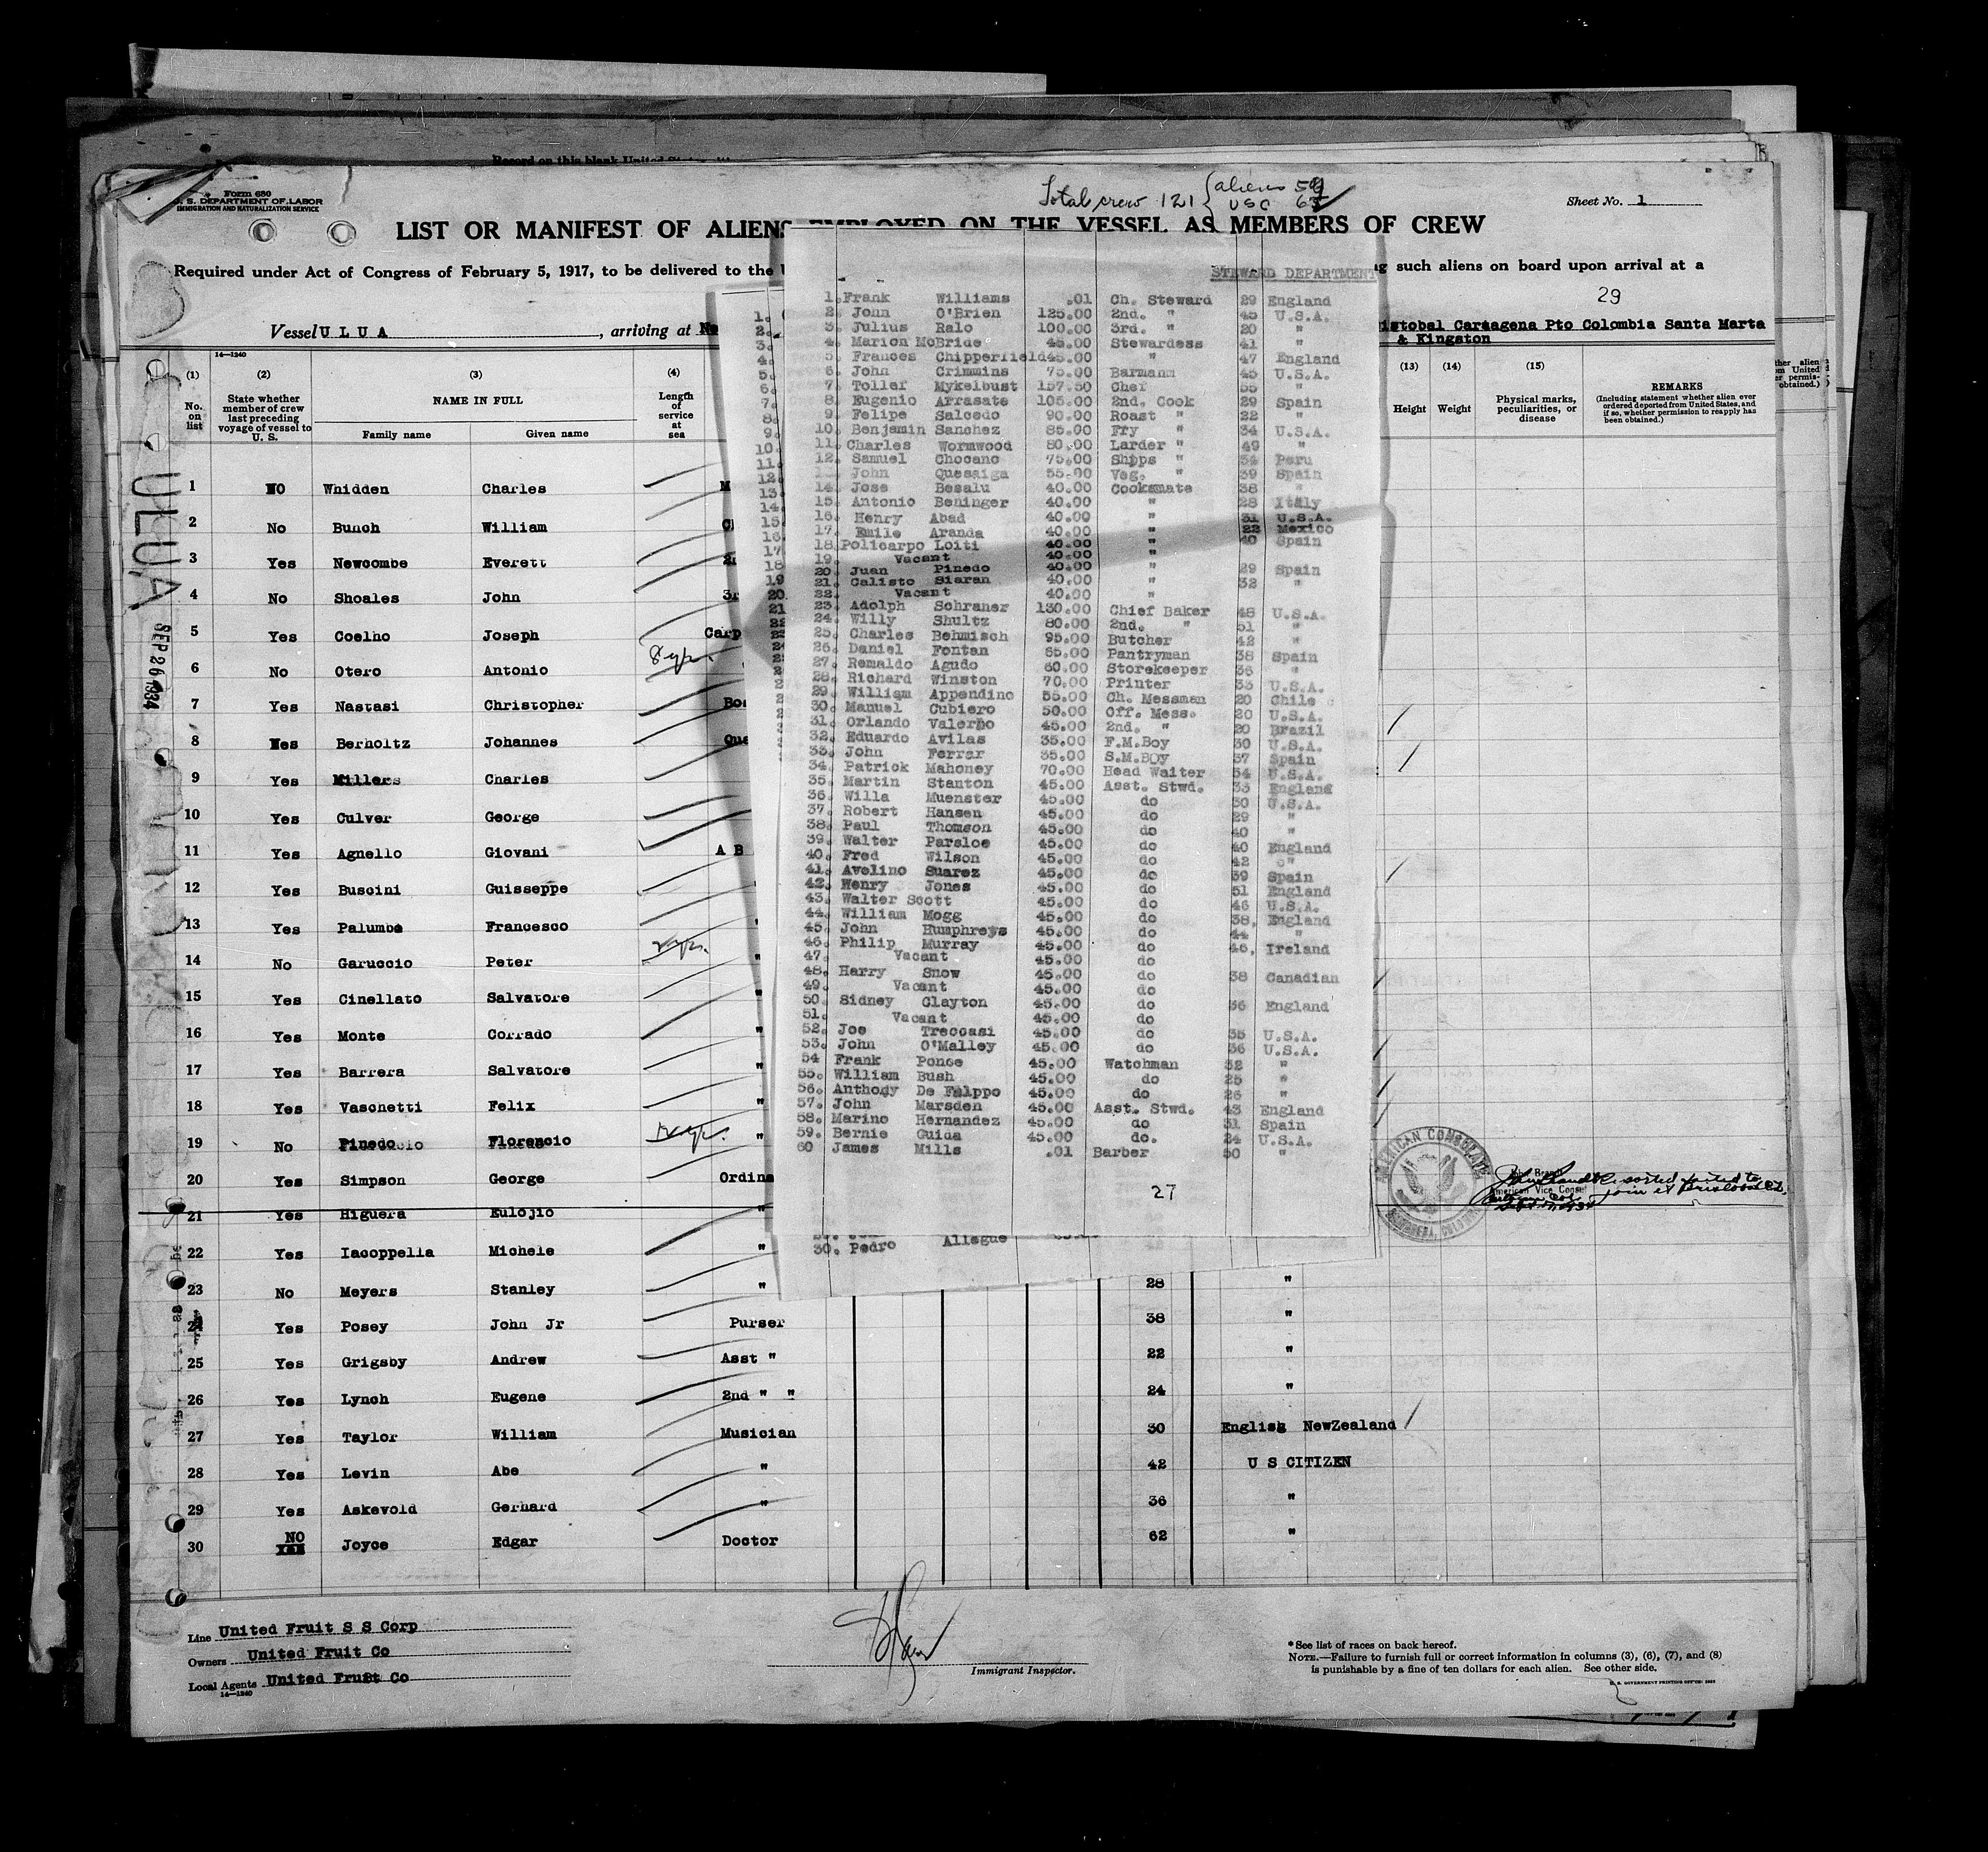 Record on this blank United States
Form 680
U. S. DEPARTMENT OF LABOR
IMMIGRATION AND NATURALIZATION SERVICE
Total crew 121 { aliens
USC
Sheet No. 1
LIST OR MANIFEST OF ALIENS EMPLOYED ON THE VESSEL AS MEMBERS OF CREW
Required under Act of Congress of February 5, 1917, to be delivered to the
such aliens on board upon arrival at a
29
Vessel ULUA, arriving at
Cristobal Cartagena Pto Colombia Santa Marta
& Kingston
14—1240
(1) No. on list
(2) State whether member of crew last preceding voyage of vessel to U. S.
(3) NAME IN FULL
Family name Given name
(4) Length of service at sea
(13) Height
(14) Weight
(15) Physical marks, peculiarities, or disease
REMARKS
(Including statement whether alien ever ordered deported from United States, and if so, whether permission to reapply has been obtained.)
ULUA
SEP 26 1934
1 NO Whidden Charles
2 No Bunch William
3 Yes Newcombe Everett
4 No Shoales John
5 Yes Coelho Joseph Carp
6 No Otero Antonio 8 yrs.
7 Yes Nastasi Christopher Bos
8 Yes Berholtz Johannes Qua
9 Yes Millers Charles
10 Yes Culver George
11 Yes Agnello Giovani A B
12 Yes Buscini Guisseppe
13 Yes Palumbo Francesco "
14 No Garuccio Peter "
15 Yes Cinellato Salvatore "
16 Yes Monte Corrado "
17 Yes Barrera Salvatore "
18 Yes Vaschetti Felix "
19 No Pinedo Florencio "
20 Yes Simpson George Ordina
21 Yes Higuera Eulojio "
22 Yes Iacoppella Michele "
23 No Meyers Stanley " 28 "
24 Yes Posey John Jr Purser 38 "
25 Yes Grigsby Andrew Asst " 22 "
26 Yes Lynch Eugene 2nd " " 24 "
27 Yes Taylor William Musician 30 English NewZealand
28 Yes Levin Abe " 42 U S CITIZEN
29 Yes Askevold Gerhard " 36 "
30 NO Joyce Edgar Doctor 62 "
STEWARD DEPARTMENT
1. Frank Williams .01 Ch. Steward 29 England
2. John O'Brien 125.00 2nd. " 45 U.S.A.
3. Julius Ralo 100.00 3rd. " 20 "
4. Marion McBride 45.00 Stewardess 41 "
5. Frances Chipperfield 45.00 " 47 England
6. John Crimmins 75.00 Barmann 45 U.S.A.
7. Tollef Mykelbust 157.50 Chef 55 "
8. Eugenio Arrasate 105.00 2nd. Cook 29 Spain
9. Felipe Salcedo 90.00 Roast " 22 "
10. Benjamin Sanchez 85.00 Fry " 34 U.S.A.
11. Charles Wormwood 80.00 Larder " 49 "
12. Samuel Chocano 75.00 Shpps " 34 Peru
13. John Quesaiga 55.00 Veg. " 39 Spain
14. Jose Besalu 40.00 Cooksmate 38 "
15. Antonio Beninger 40.00 " 28 Italy
16. Henry Abad 40.00 " 31 U.S.A.
17. Emile Aranda 40.00 " 22 Mexico
18. Policarpo Loiti 40.00 " 40 Spain
19. Vacant 40.00 "
20. Juan Pinedo 40.00 " 29 Spain
21. Calisto Siaran 40.00 " 32 "
22. Vacant 40.00 "
23. Adolph Schraner 130.00 Chief Baker 48 U.S.A.
24. Willy Shultz 80.00 2nd. " 51 "
25. Charles Behmisch 95.00 Butcher 42 "
26. Daniel Fontan 65.00 Pantryman 38 Spain
27. Remaldo Agudo 60.00 Storekeeper 36 "
28. Richard Winston 70.00 Printer 33 U.S.A.
29. William Appendino 55.00 Ch. Messman 20 Chile
30. Manuel Cubiero 50.00 Off. Mess. 20 U.S.A.
31. Orlando Valerho 45.00 2nd. " 20 Brazil
32. Eduardo Avilas 35.00 F.M.Boy 30 U.S.A.
33. John Ferrar 35.00 S.M.BOY 37 Spain
34. Patrick Mahoney 70.00 Head Waiter 54 U.S.A.
35. Martin Stanton 45.00 Asst. Stwd. 33 England
36. Willa Muenster 45.00 do 30 U.S.A.
37. Robert Hansen 45.00 do 29 "
38. Paul Thomson 45.00 do 40 "
39. Walter Parsloe 45.00 do 40 England
40. Fred Wilson 45.00 do 42 "
41. Avelino Suarez 45.00 do 39 Spain
42. Henry Jones 45.00 do 51 England
43. Walter Scott 45.00 do 46 U.S.A.
44. William Mogg 45.00 do 38, England
45. John Humphreys 45.00 do 44 "
46. Philip Murray 45.00 do 46, Ireland
47. Vacant 45.00 do
48. Harry Snow 45.00 do 38 Canadian
49. Vacant 45.00 do
50. Sidney Clayton 45.00 do 36 England
51. Vacant 45.00 do
52. Joe Treccasi 45.00 do 35 U.S.A.
53. John O'Malley 45.00 do 36 U.S.A.
54 Frank Ponce 45.00 Watchman 32 "
55. William Bush 45.00 do 25 "
56. Anthony De Falppo 45.00 do 26 "
57. John Marsden 45.00 Asst. Stwd. 43 England
58. Marino Hernandez 45.00 do 31 Spain
59. Bernie Guida 45.00 do. 24 U.S.A.
60 James Mills .01 Barber 50 "
27
30. Pedro Allegue
AMERICAN CONSULATE
American Vice Consul
Line United Fruit S S Corp
Owners United Fruit Co
Local Agents United Fruit Co
14—1240
Immigrant Inspector.
*See list of races on back hereof.
NOTE.—Failure to furnish full or correct information in columns (3), (6), (7), and (8)
is punishable by a fine of ten dollars for each alien. See other side.
U. S. GOVERNMENT PRINTING OFFICE